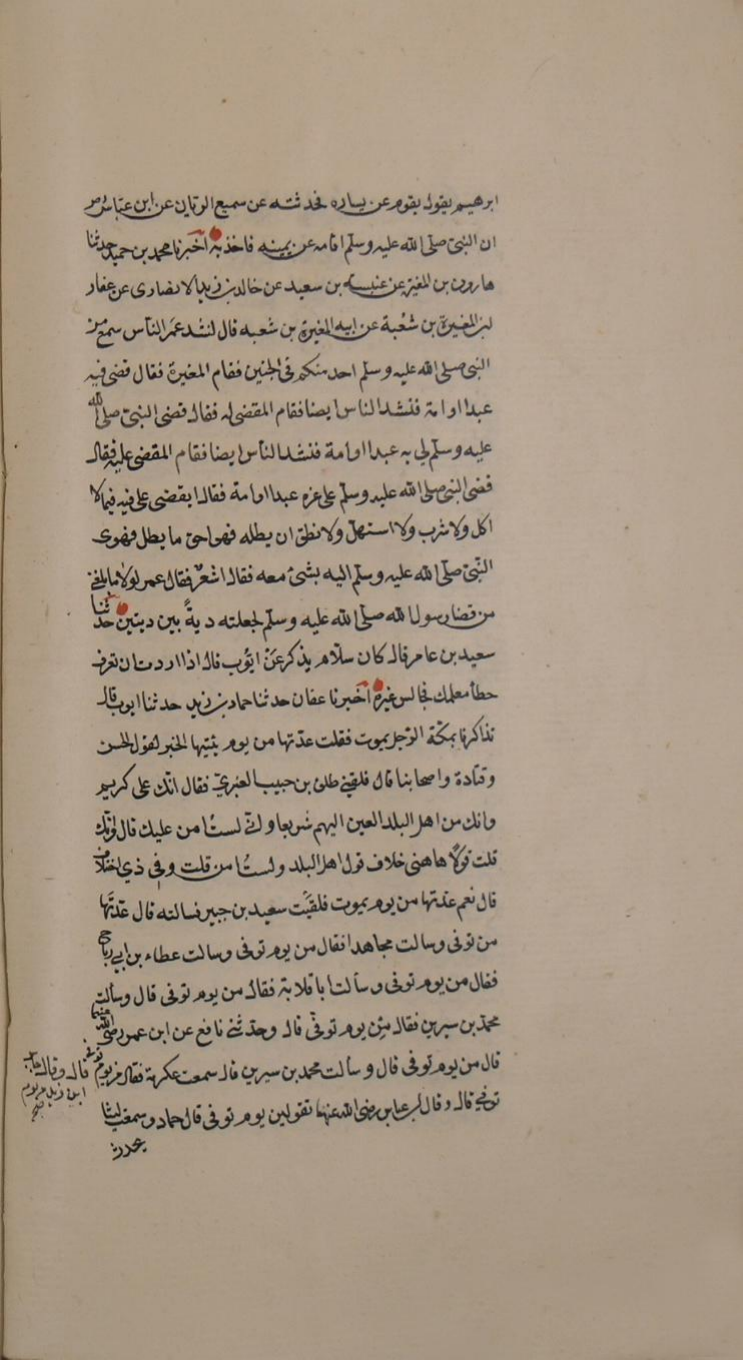 ابرهيم يقول يقوم عن يساره فحدثته عن سميع الزيات عن ابن عباس رضر
ان النبى صلى الله عليه وسلم اقامه عن يمينه فاخذ به اخبرنا محمد بن حميد حدثنا
هارون بن المغيرة عن عنبسه بن سعيد عن خالد بن زيد الانصارى عن عقار
ابن المغيرة بن شعبة عن ابيه المغيرة بن شعبه قال لنشد عمر الناس سمع من
النبى صلى الله عليه وسلم احد منكم فى الجنين فقام المغيرة فقال قضى فيه
عبدا او امة فنشد الناس ايضا فقام المقضى له فقال قضى النبى صلى الله
عليه وسلم لي به عبدا او امة فنشد الناس ايضا فقام المقضى عليه فقال
قضى النبى صلى الله عليه وسلم على غره عبدا او امة فقال ايقضى على فيه فيما لا
اكل ولا شرب ولا استهل ولا نطق ان يطله فهو احق ما يطل فهوى
النبى صلى الله عليه وسلم اليه بشئ معه فقال اشعر فقال عمر لولا ما بلغنى
من قضا رسول الله صلى الله عليه وسلم لجعلته دية بين ديتين حدثنا
سعيد بن عامر قال كان سلام يذكر عن ايوب قال اذا اردت ان تعرف
خطأ معلمك فجالس غيره اخبرنا عفان حدثنا حماد بن زيد حدثنا ايوب قال
تذاكرنا بمكة الرجل يموت فقلت عدتها من يوم يتيها الخبر لقول الحسن
وقتادة واصحابنا قال فلقينى طلق بن حبيب العنزي فقال انك على كريم
وانك من اهل البلد العين اليهم سريعا وانى لست امن عليك قال وانك
قلت قولا هاهنى خلاف قول اهل البلد ولست امن قلت وفي ذي اختلاف
قال نعم عدتها من يوم يموت فلقيت سعيد بن جبير فسالته قال عدتها
من توفى وسالت مجاهدا فقال من يوم توفى وسالت عطاء بن ابي رباح
فقال من يوم توفى وسألت ابا قلابة فقال من يوم توفى قال وسألت
محمد بن سيرين فقال من يوم توفى قال وحدثنى نافع عن ابن عمر رضى الله عنهما
قال من يوم توفى قال وسألت محمد بن سيرين قال سمعت عكرمة فقال من يوم توفى قال وقال جابر
ابن زيد من يوم
صح
توفى قال وقال ابن عباس رضى الله عنهما تقولين يوم توفى قال حماد وسمعت ليثا
يحدث